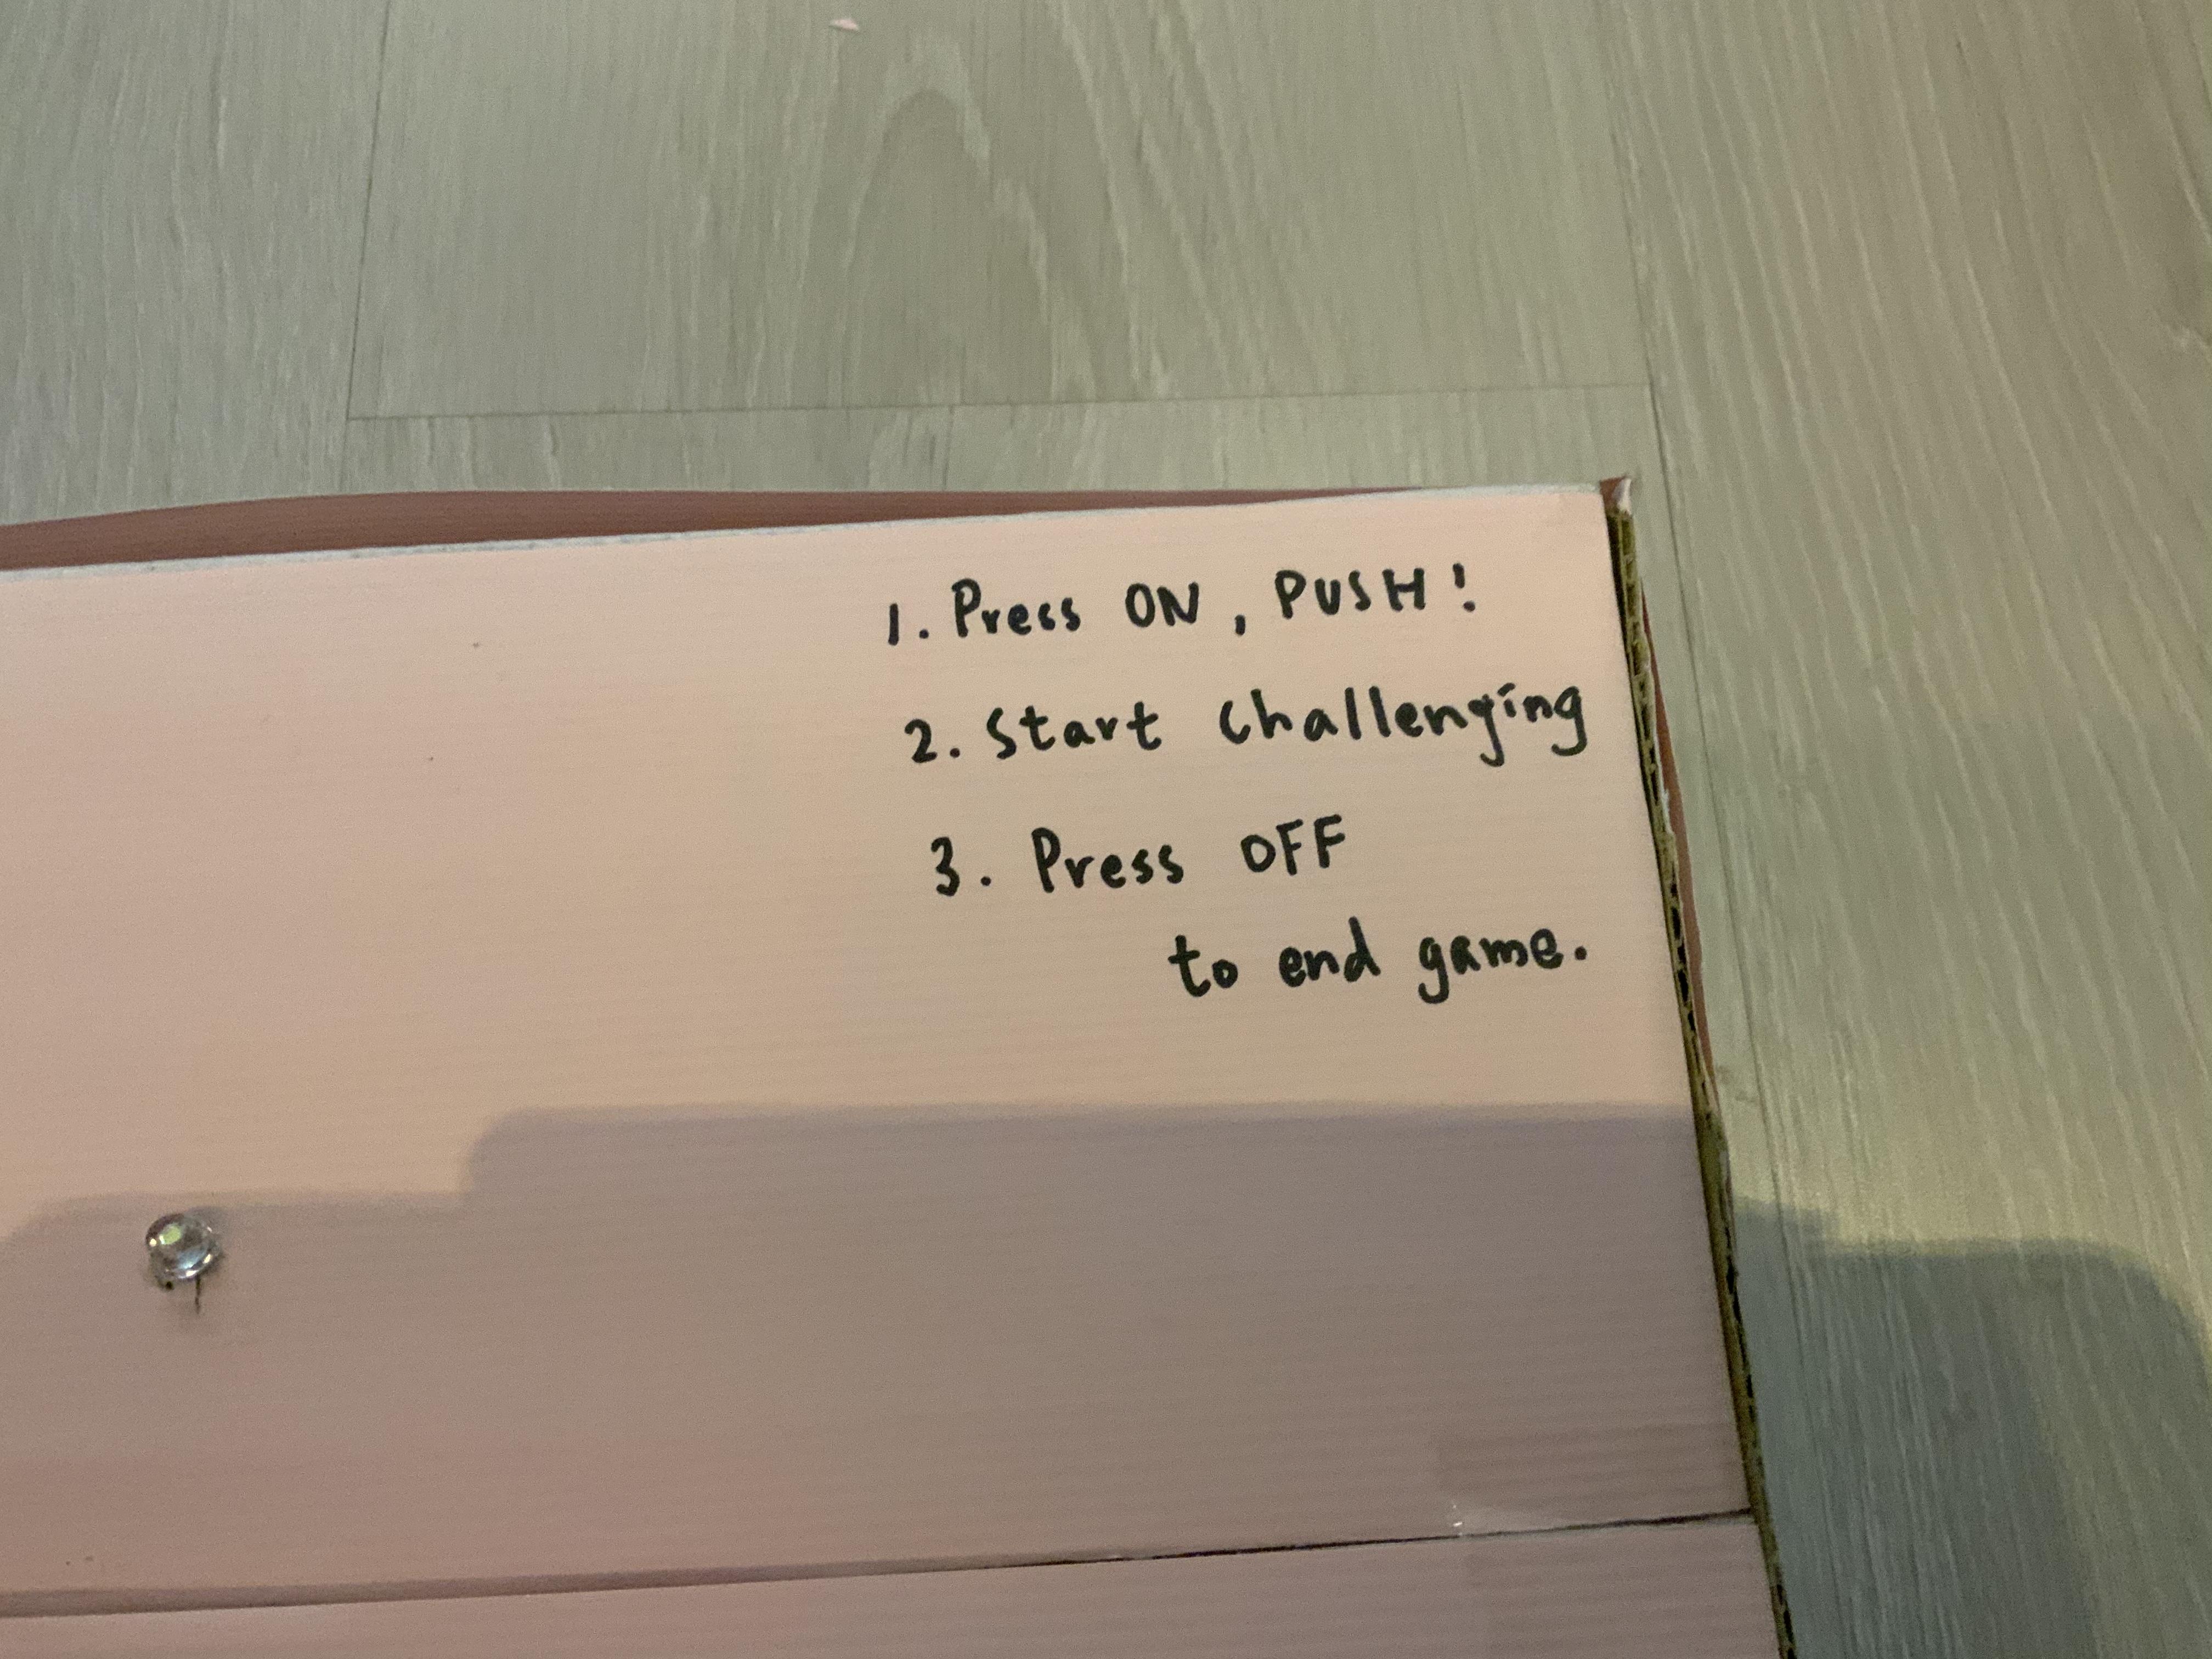 1. Press ON, PUSH!
2. Start challenging
3. Press OFF
to end game.